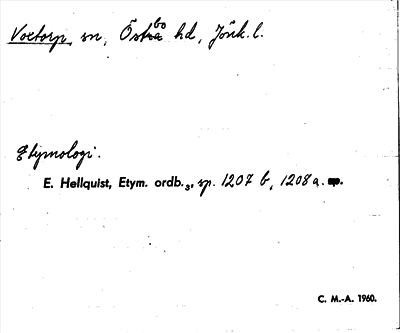 Voetorp, sn, Östbo hd, Jönk. l.
Etymologi.
E. Hellquist, Etym. ordb.₃, sp. 1207 b, 1208 a.
C. M.-A. 1960.